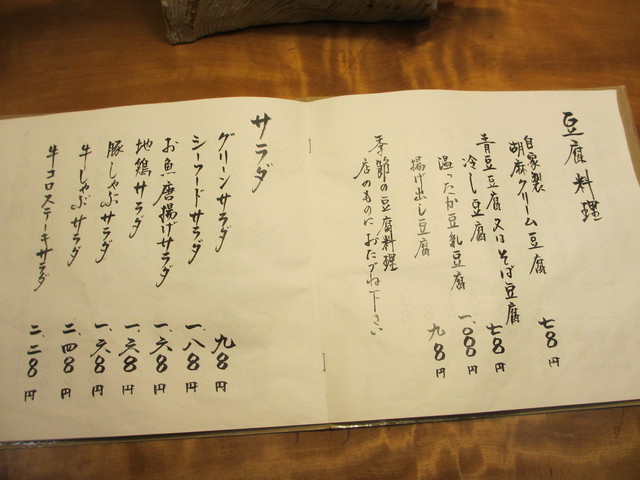 豆腐料理
自家製
胡麻クリーム豆腐 七〇〇円
青豆豆腐 又は そば豆腐
冷し豆腐 七〇〇円
温ったか豆乳豆腐 一、〇〇〇円
揚げ出し豆腐 九〇〇円
季節の豆腐料理
店のものに おたづね下さい
サラダ
グリーンサラダ 九〇〇円
シーフードサラダ 一、八〇〇円
お魚唐揚げサラダ 一、六〇〇円
地鶏サラダ 一、三〇〇円
豚しゃぶサラダ 一、六〇〇円
牛しゃぶサラダ 二、四〇〇円
牛コロステーキサラダ 二、二〇〇円